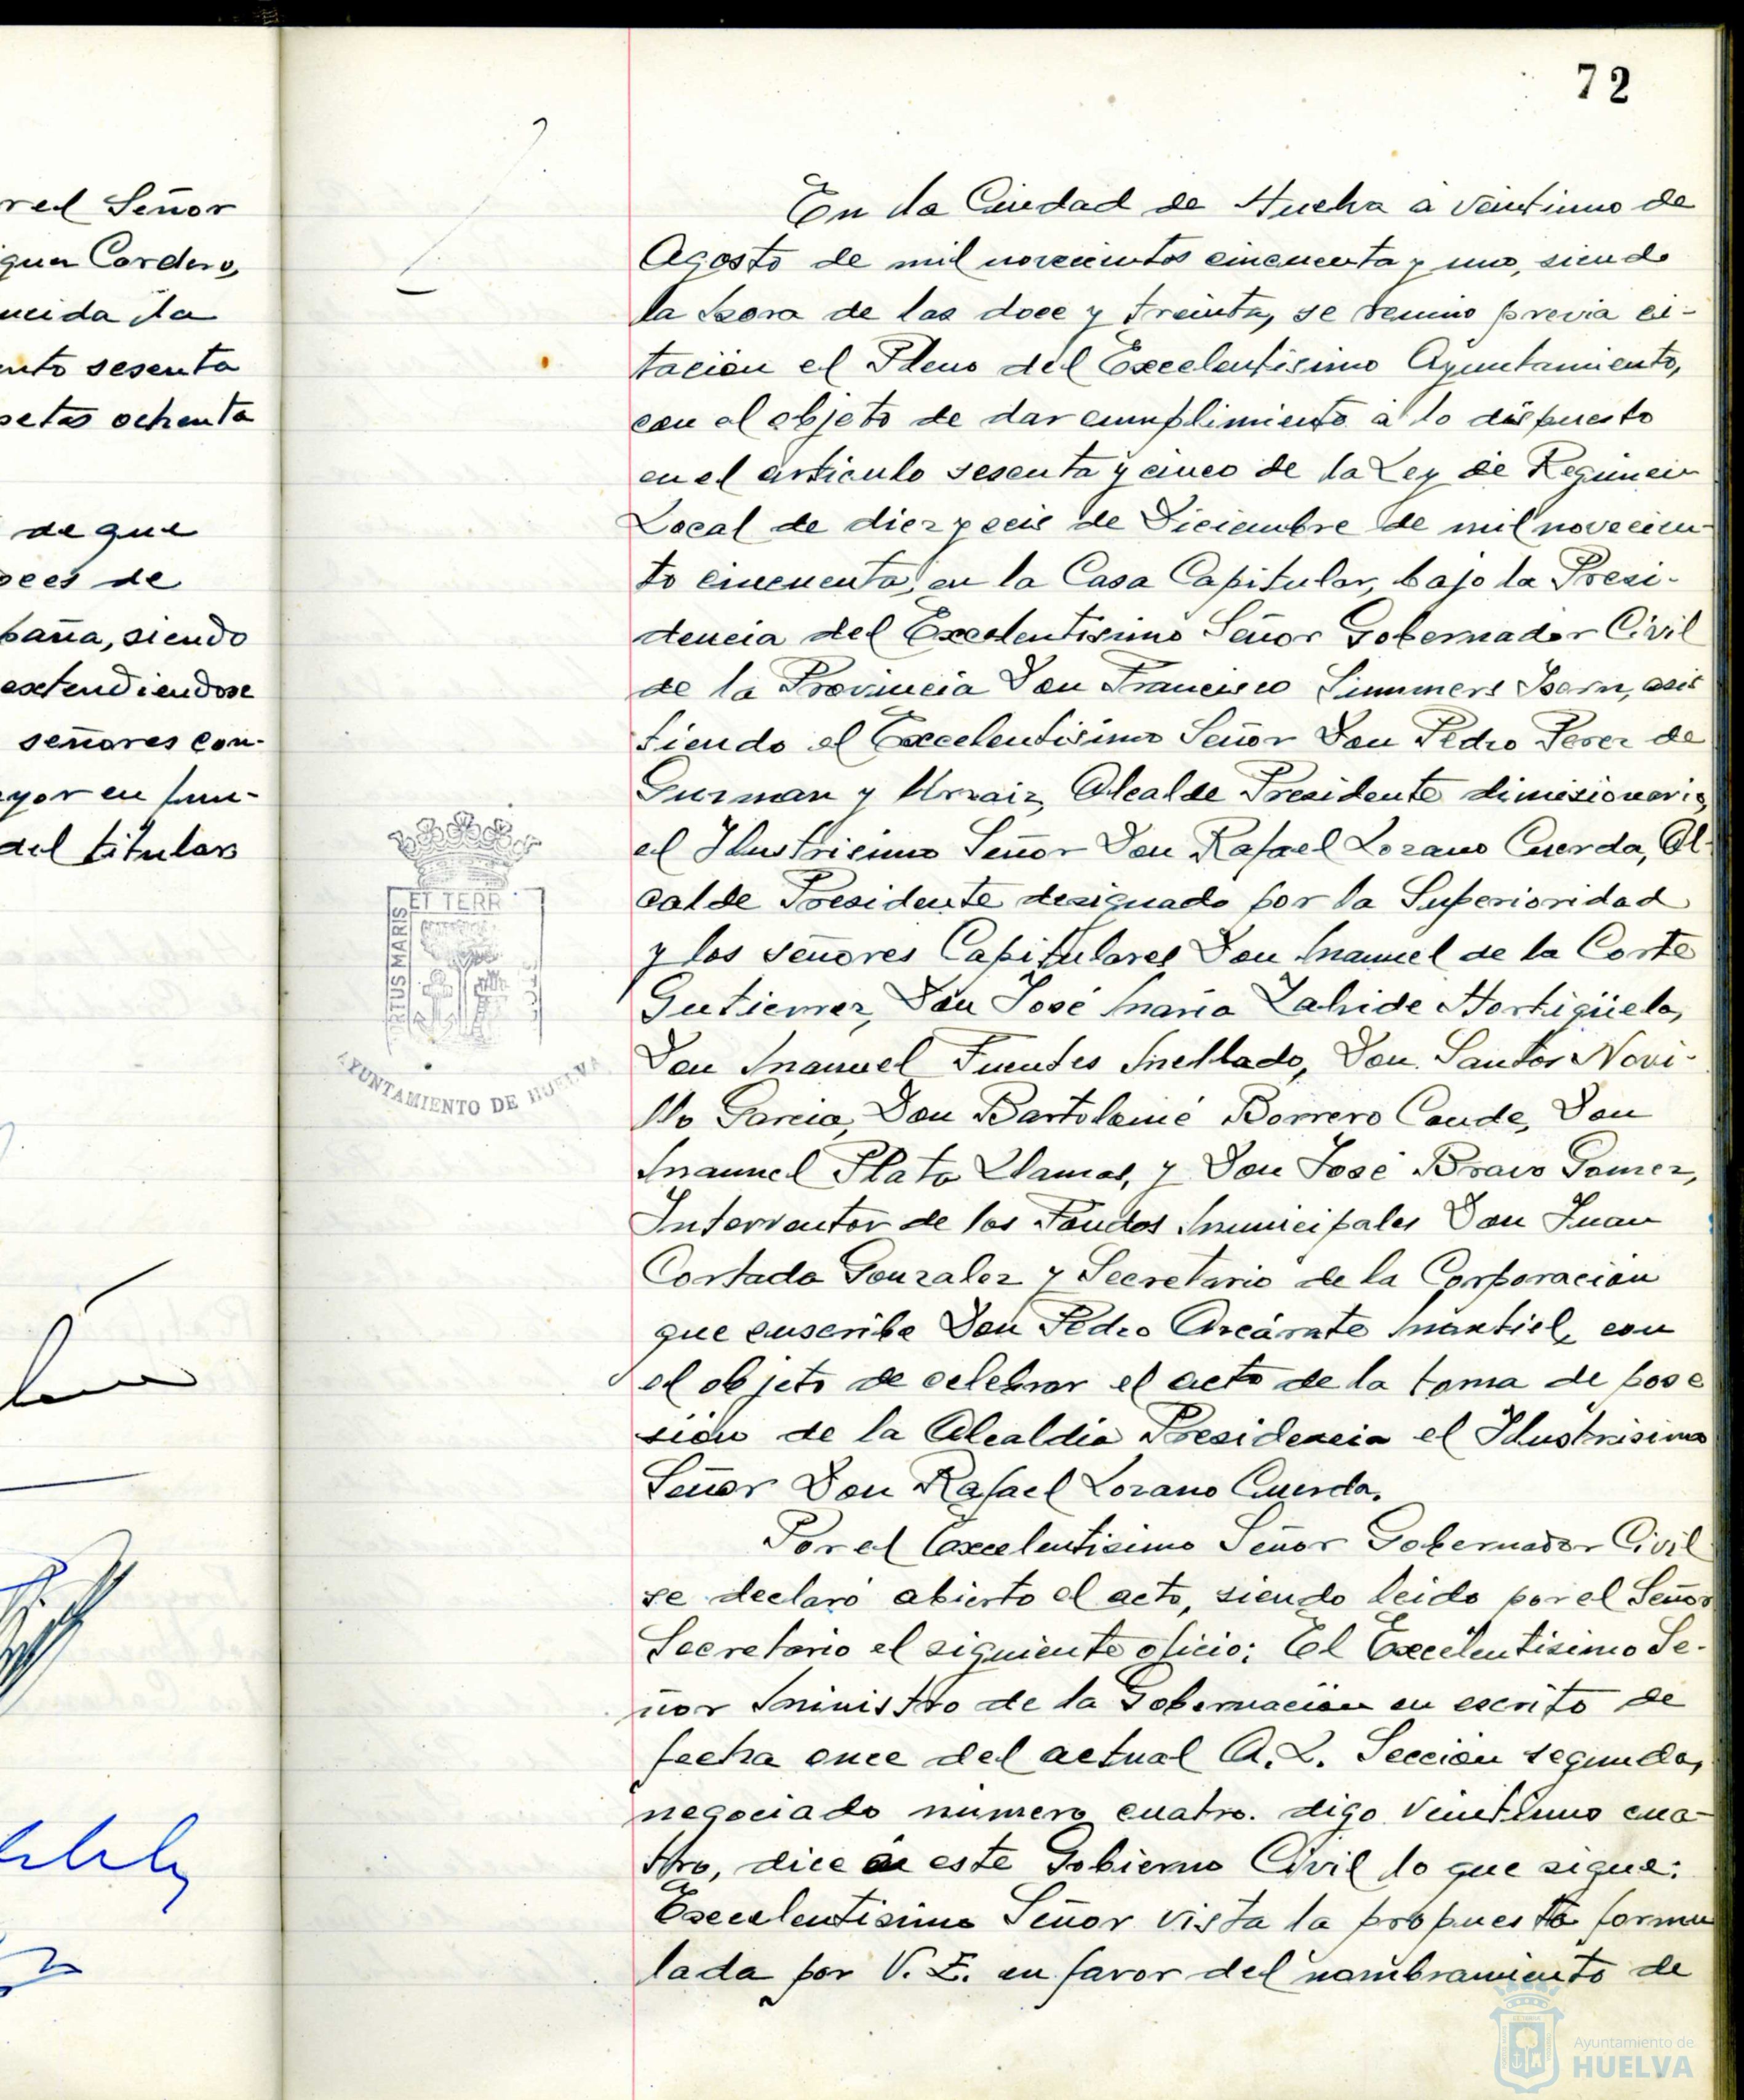 72
rel Señor
guer Cordero,
ucida la
nto sesenta
setas ochenta
de que
oces de
paña, siendo
extendiendose
señores con-
yor en fun-
del titular
En la Ciudad de Huelva a veintiuno de
Agosto de mil novecientos cincuenta y uno, siendo
la hora de las doce y treinta, se reunio previa ci-
tación el Pleno del Excelentisimo Ayuntamiento,
con el objeto de dar cumplimiento a lo dispuesto
en el articulo sesenta y cinco de la Ley de Regimen
Local de diez y seis de Diciembre de mil novecien-
to cincuenta, en la Casa Capitular, bajo la Presi-
dencia del Excelentisimo Señor Gobernador Civil
de la Provincia Don Francisco Summers Isern, asis
tiendo el Excelentisimo Señor Don Pedro Perez de
Guzman y Urzaiz, Alcalde Presidente dimisionario,
el Ilustrisimo Señor Don Rafael Lozano Cuerda, Al-
calde Presidente designado por la Superioridad
y los señores Capitulares Don Manuel de la Corte
Gutierrez, Don José Maria Zalvide Hortigüela,
Don Manuel Fuentes Mellado, Don Santos Novi-
llo Garcia, Don Bartolomé Borrero Conde, Don
Manuel Plata Llamas, y Don José Bravo Gomez,
Interventor de los Fondos Municipales Don Juan
Cortada Gonzalez y Secretario de la Corporacion
que suscribe Don Pedro Arcárate Montiel, con
el objeto de celebrar el acto de la toma de pose
sion de la Alcaldia Presidencia el Ilustrisimo
Señor Don Rafael Lozano Cuerda.
Por el Excelentisimo Señor Gobernador Civil
se declaró abierto el acto, siendo leido por el Señor
Secretario el siguiente oficio: El Excelentisimo Se-
ñor Ministro de la Gobernación en escrito de
fecha once del actual A.L. Seccion segunda,
negociado numero cuatro. digo veintiuno cua-
tro, dice a este Gobierno Civil lo que sigue:
Excelentisimo Señor vista la propuesta formu
lada por V.E. en favor del nombramiento de
ET TERR
RTUS MARIS
AYUNTAMIENTO DE HUELVA
Ayuntamiento de
HUELVA